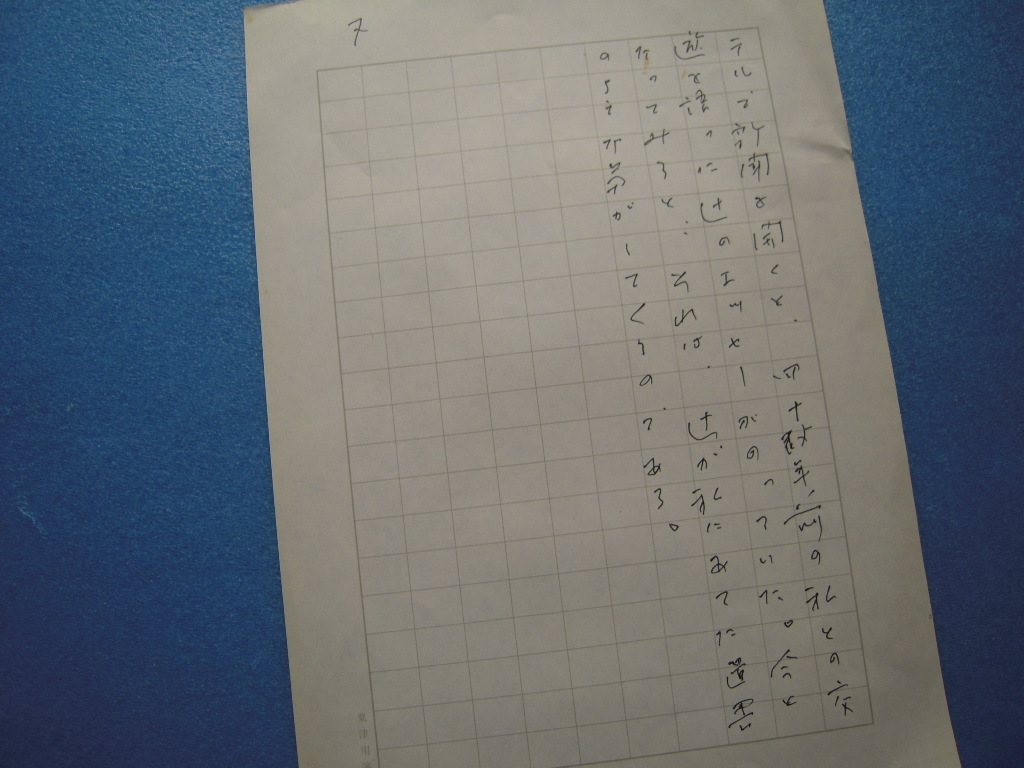 7
テルで新聞を開くと、四十数年前の私との交
遊を語った辻のエッセーがのっていた。今と
なってみると、それは、辻が私にあてた遺書
のような気がしてくるのである。